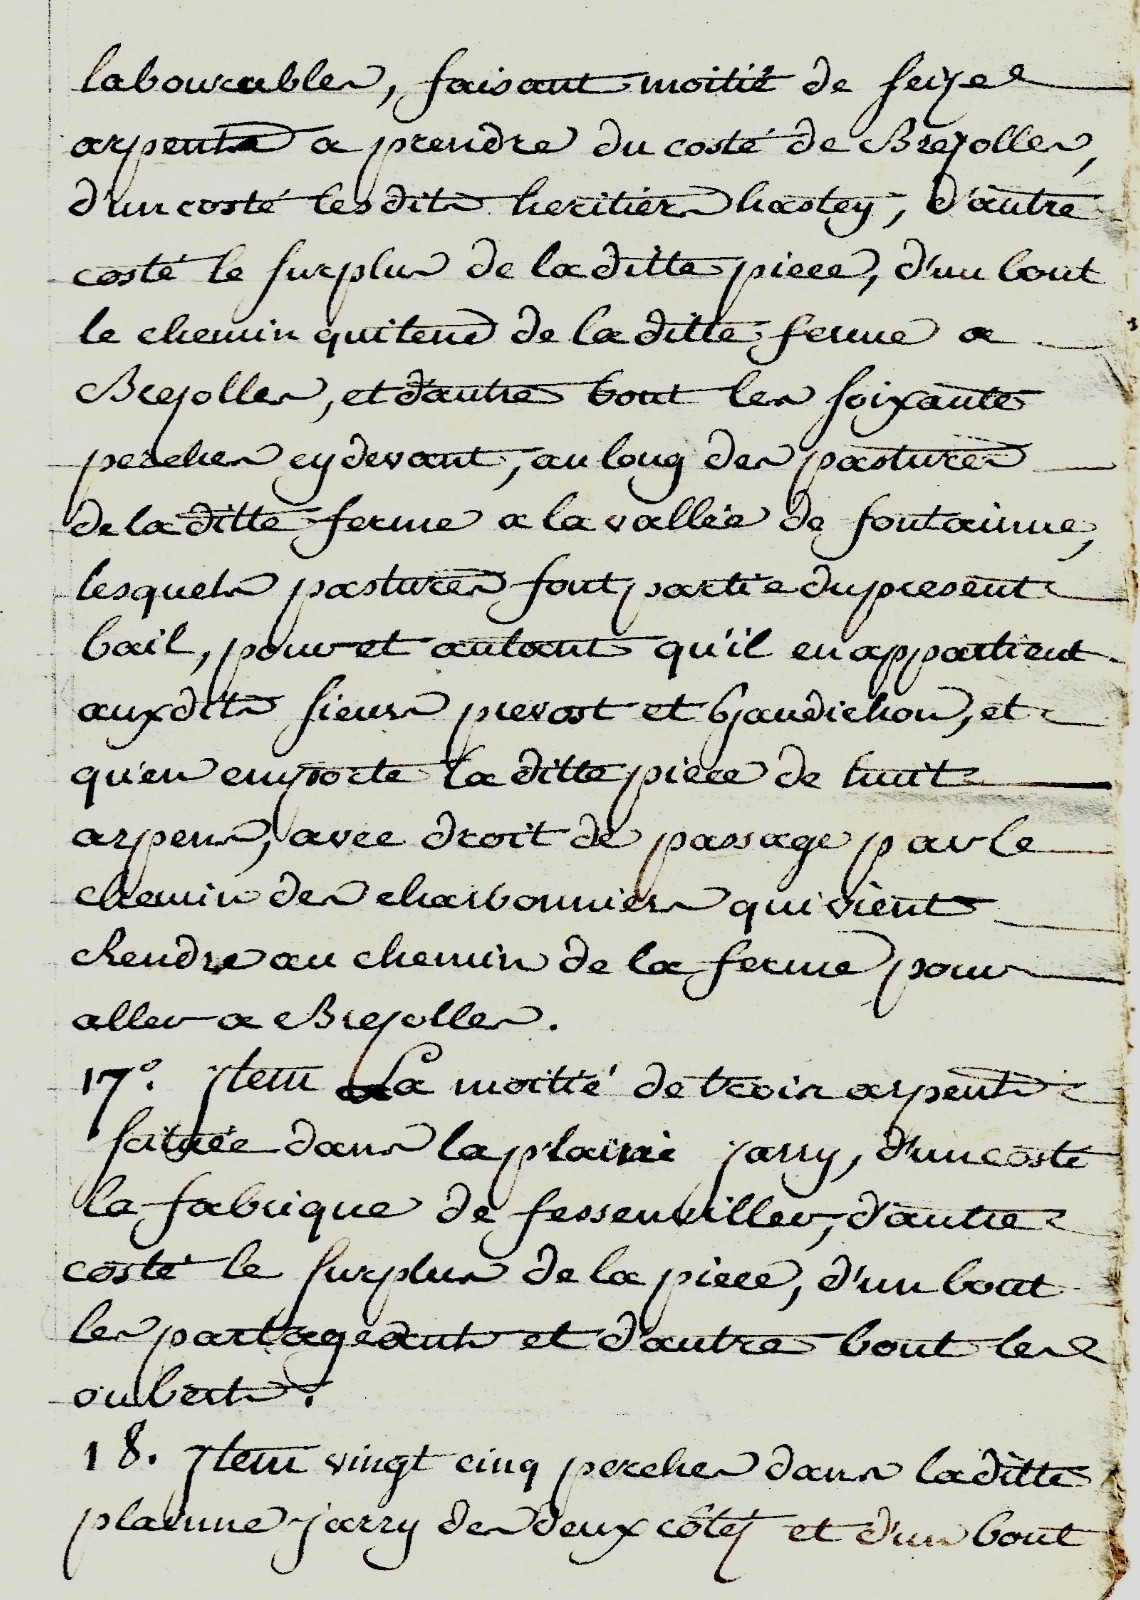 labourables, faisant moitié de seize
arpents a prendre du costé de Brezolles,
d'un costé lesdits heritiers hastey, d'autre
costé le surplus de la ditte piece, d'un bout
le chemin qui tend de la ditte ferme a
Brezolles, et d'autre bout les soixante
perches cy devant, au long des pastures
de la ditte ferme a la vallée de fontainne,
lesquels pastures font partie du present
bail, pour et autant qu'il en appartient
auxdits sieurs prevost et Gaudichon, et
qu'en emporte la ditte piece de huit
arpens, avec droit de passage par le
chemin des charbonniers qui vient
Rendre au chemin de la ferme pour
aller a Brezolles.
17º. Jtem La moitié de trois arpents
située dans la plaine jarry, d'un costé
la fabrique de fessenviller, d'autre
costé le surplus de la piece, d'un bout
les partageants et d'autre bout les
ouberts.
18. Jtem vingt cinq perches dans laditte
plainne jarry des deux côtéz et d'un bout